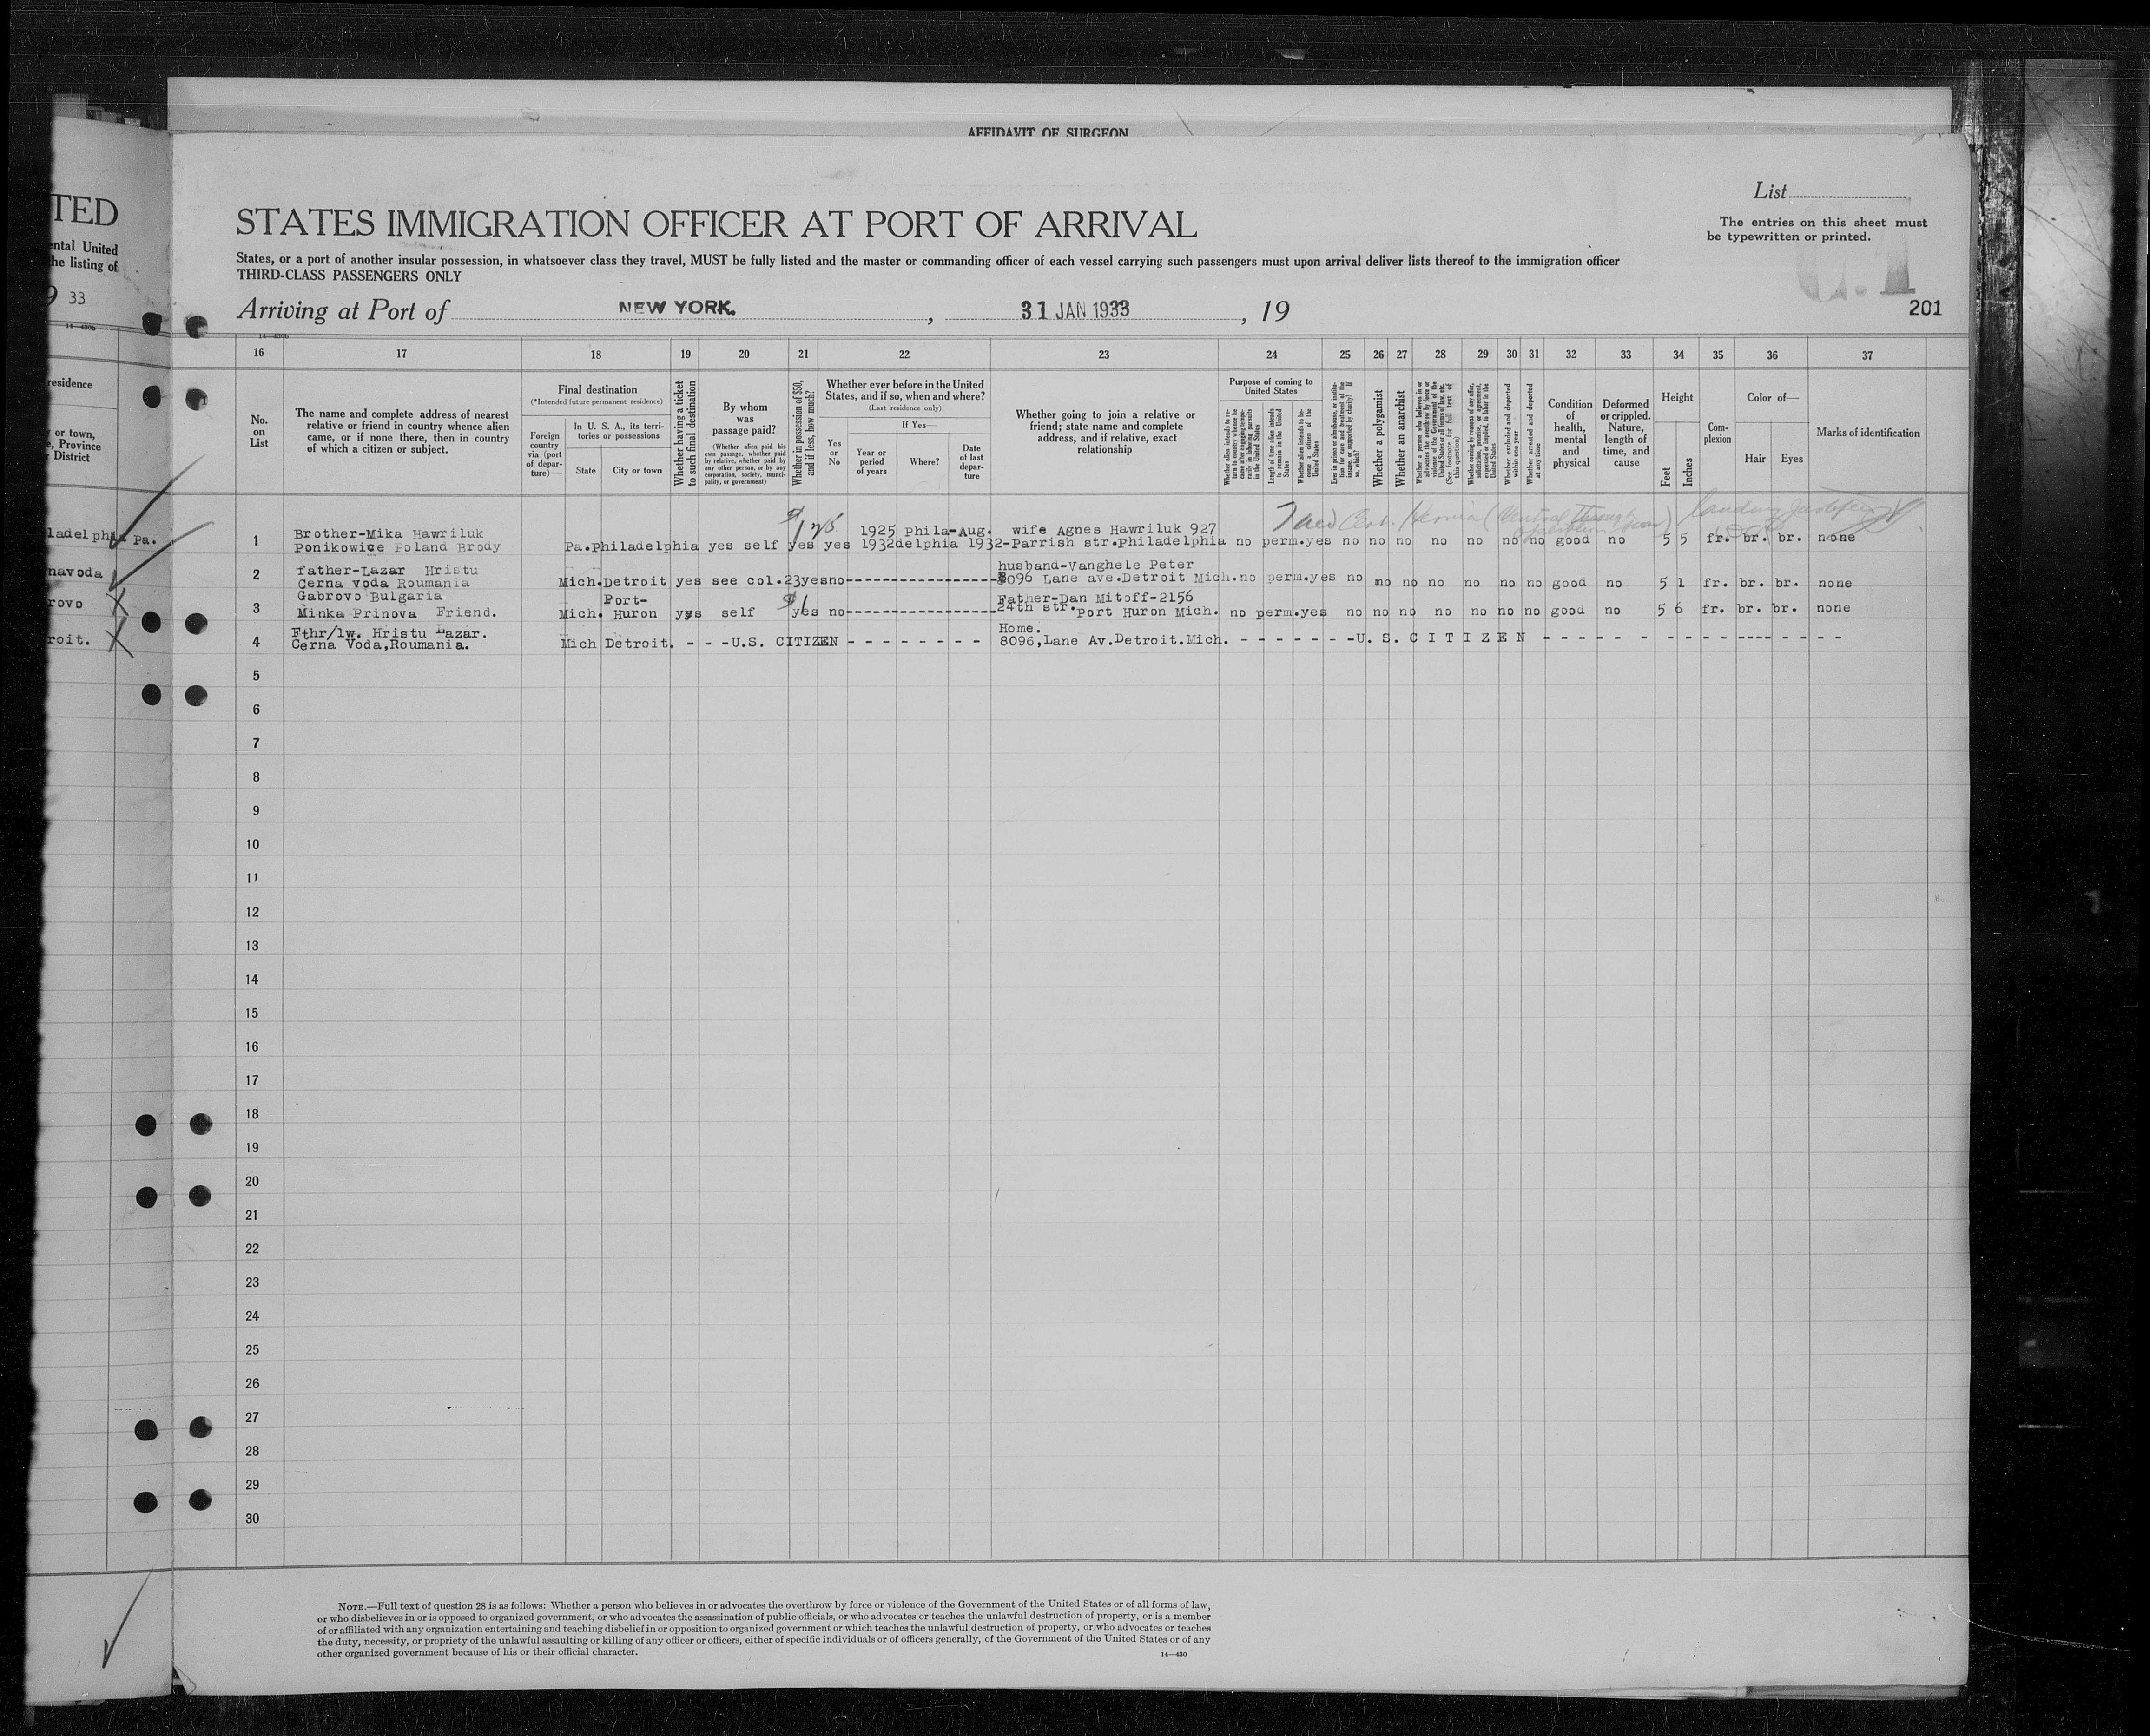 AFFIDAVIT OF SURGEON
TED
ental United
he listing of
9 33
14—430b
residence
or town,
e, Province
District
ladelphia Pa.
navoda
rovo X
roit. X
List
The entries on this sheet must
be typewritten or printed.
STATES IMMIGRATION OFFICER AT PORT OF ARRIVAL
States, or a port of another insular possession, in whatsoever class they travel, MUST be fully listed and the master or commanding officer of each vessel carrying such passengers must upon arrival deliver lists thereof to the immigration officer
THIRD-CLASS PASSENGERS ONLY
Arriving at Port of NEW YORK. , 31 JAN 1933 , 19
201
14—430b
16 17 18 19 20 21 22 23 24 25 26 27 28 29 30 31 32 33 34 35 36 37
No.
on
List
The name and complete address of nearest
relative or friend in country whence alien
came, or if none there, then in country
of which a citizen or subject.
Final destination
(*Intended future permanent residence)
Foreign
country
via (port
of depar-
ture)—
In U. S. A., its terri-
tories or possessions
State City or town
Whether having a ticket
to such final destination
By whom
was
passage paid?
(Whether alien paid his
own passage, whether paid
by relative, whether paid by
any other person, or by any
corporation, society, munici-
pality, or government)
Whether in possession of $50,
and if less, how much?
Whether ever before in the United
States, and if so, when and where?
(Last residence only)
Yes
or
No
If Yes—
Year or
period
of years
Where?
Date
of last
depar-
ture
Whether going to join a relative or
friend; state name and complete
address, and if relative, exact
relationship
Purpose of coming to
United States
Whether alien intends to re-
turn to country whence he
came after engaging tempo-
rarily in laboring pursuits
in the United States
Length of time alien intends
to remain in the United
States
Whether alien intends to be-
come a citizen of the
United States
Ever in prison or almshouse, or institu-
tion for care and treatment of the
insane, or supported by charity? If
so, which?
Whether a polygamist
Whether an anarchist
Whether a person who believes in or
advocates the overthrow by force or
violence of the Government of the
United States or all forms of law, etc.
(See footnote for full text of
this question)
Whether coming by reason of any offer,
solicitation, promise, or agreement,
expressed or implied, to labor in the
United States
Whether excluded and deported
within one year
Whether arrested and deported
at any time
Condition
of
health,
mental
and
physical
Deformed
or crippled.
Nature,
length of
time, and
cause
Height
Feet
Inches
Com-
plexion
Color of—
Hair Eyes
Marks of identification
1 Brother-Mika Hawriluk 1925 Phila-Aug. wife Agnes Hawriluk 927
Ponikowice Poland Brody Pa.Philadelphia yes self yes yes 1932delphia 1932-Parrish str.Philadelphia no perm.yes no no no no no no no good no 5 5 fr. br. br. none
2 father-Lazar Hristu husband-Vanghele Peter
Cerna voda Roumania Mich.Detroit yes see col.23yesno--------------- 8096 Lane ave.Detroit Mich.no perm.yes no no no no no no no good no 5 1 fr. br. br. none
3 Gabrovo Bulgaria Port- Father-Dan Mitoff-2156
Minka Prinova Friend. Mich. Huron yes self yes no---------------24th str.Port Huron Mich. no perm.yes no no no no no no no good no 5 6 fr. br. br. none
4 Fthr/lw. Hristu Lazar. Home.
Cerna Voda,Roumania. Mich Detroit. - - -U.S. CITIZEN - - - - - - - - 8096,Lane Av.Detroit.Mich. - - - - - - -U. S. C I T I Z E N - - - - - - - - - - ---- - - - -
5
6
7
8
9
10
11
12
13
14
15
16
17
18
19
20
21
22
23
24
25
26
27
28
29
30
NOTE.—Full text of question 28 is as follows: Whether a person who believes in or advocates the overthrow by force or violence of the Government of the United States or of all forms of law,
or who disbelieves in or is opposed to organized government, or who advocates the assassination of public officials, or who advocates or teaches the unlawful destruction of property, or is a member
of or affiliated with any organization entertaining and teaching disbelief in or opposition to organized government or which teaches the unlawful destruction of property, or who advocates or teaches
the duty, necessity, or propriety of the unlawful assaulting or killing of any officer or officers, either of specific individuals or of officers generally, of the Government of the United States or of any
other organized government because of his or their official character.
14—430